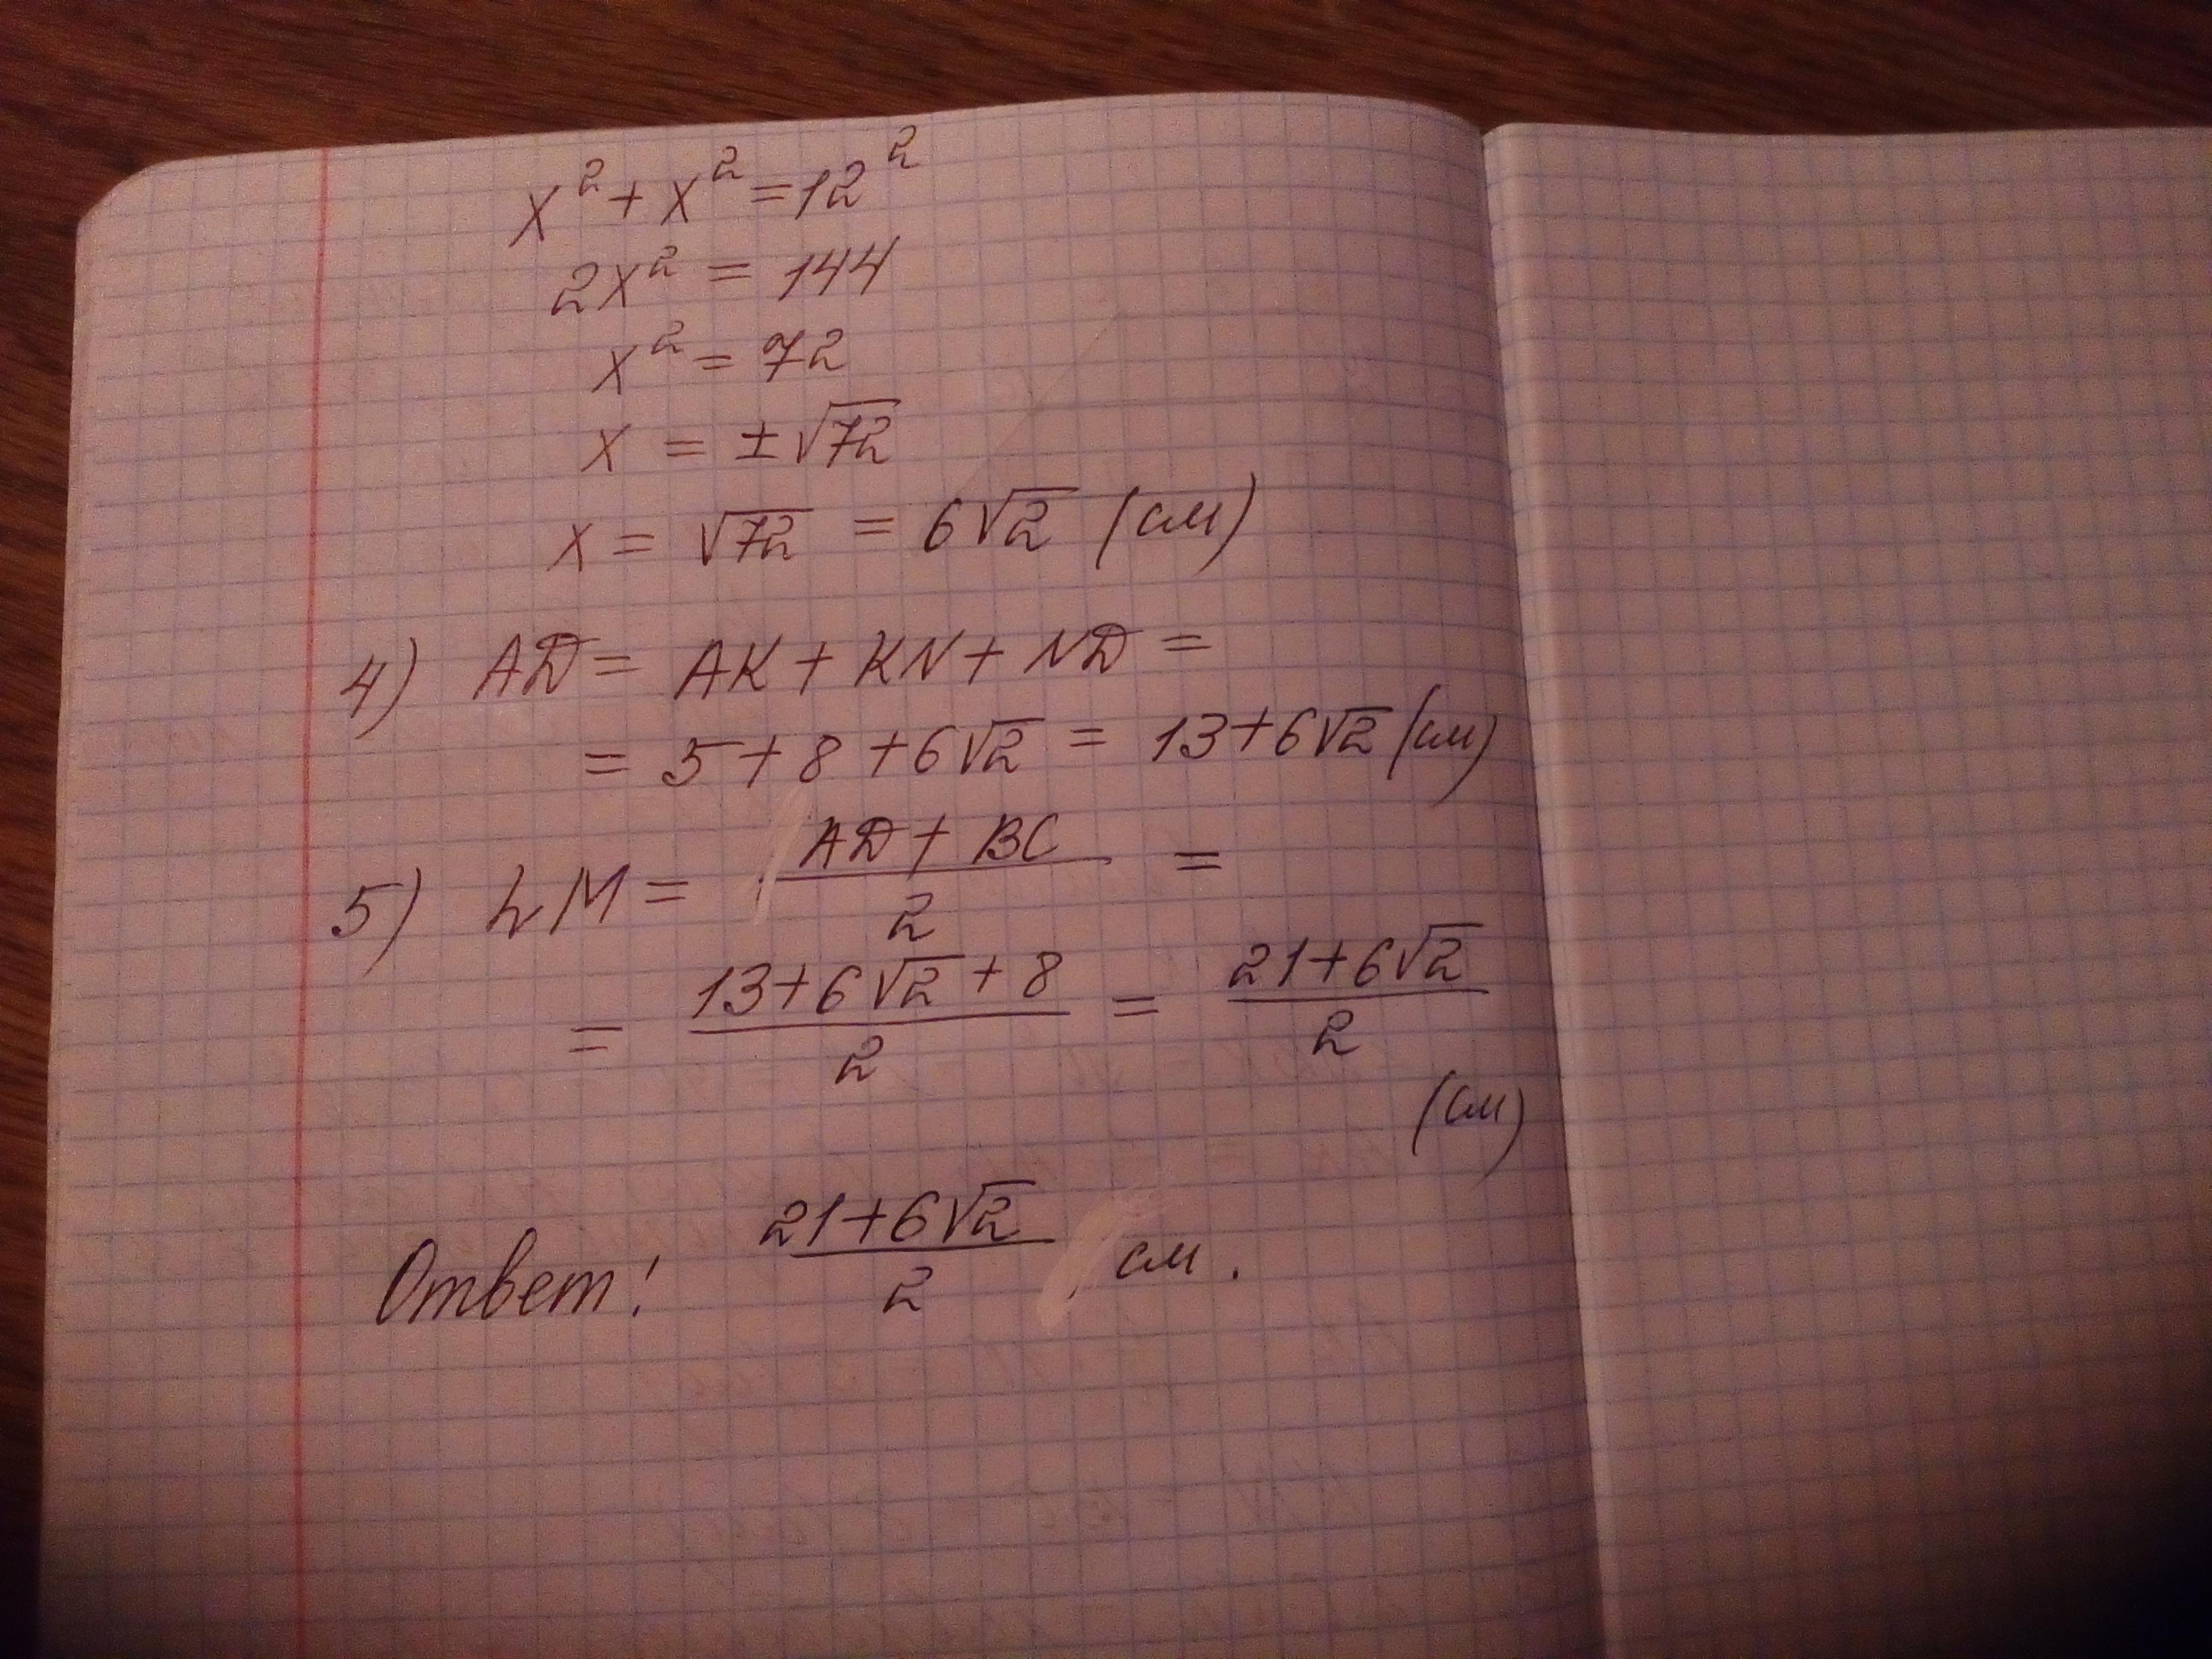 x² + x² = 12²
2x² = 144
x² = 72
x = ±√72
x = √72 = 6√2 (см)
4) AD = AK + KN + ND =
= 5 + 8 + 6√2 = 13 + 6√2 (см)
5) LM = (AD + BC)/2 =
= (13 + 6√2 + 8)/2 = (21 + 6√2)/2
(см)
Ответ: (21 + 6√2)/2 см.